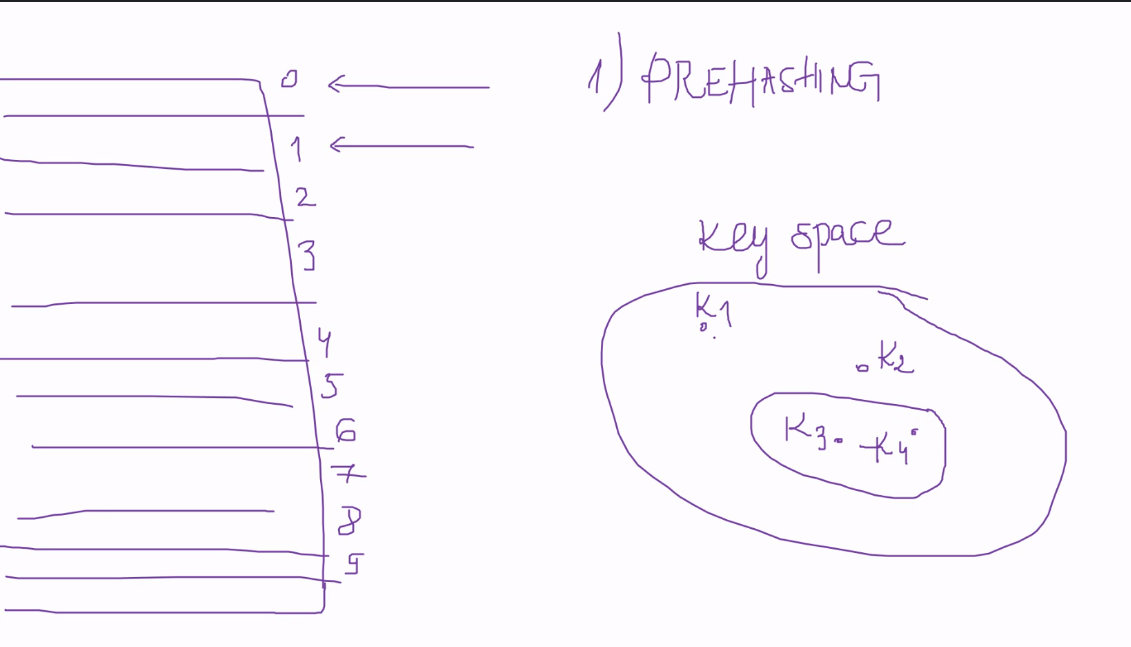 0
1
2
3
4
5
6
7
8
9
1) PREHASHING
Key space
K1
K2
K3 K4